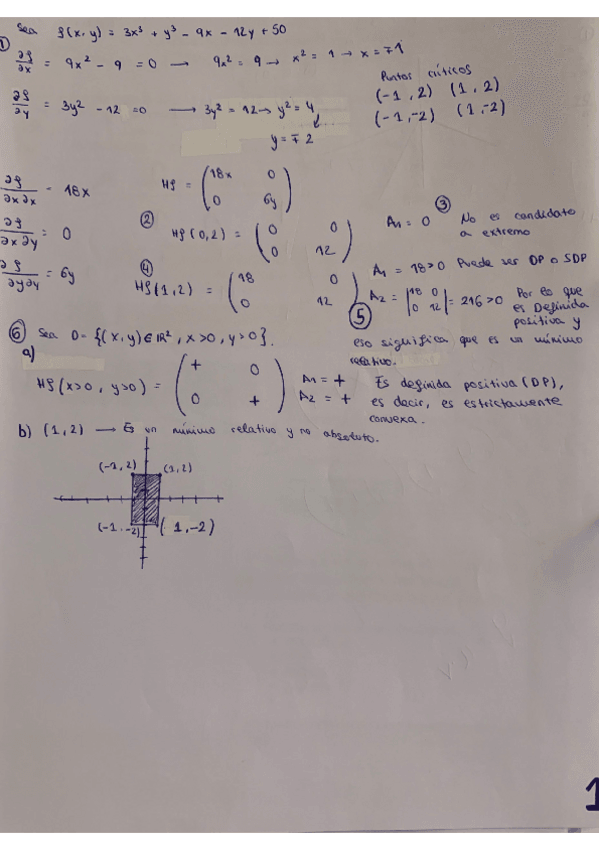 Sea f(x,y) = 3x³ + y³ - 9x - 12y + 50
① ∂f/∂x = 9x² - 9 = 0 → 9x² = 9 → x² = 1 → x = ∓1
Puntos críticos
(-1, 2) (1, 2)
(-1, -2) (1, -2)
∂f/∂y = 3y² - 12 = 0 → 3y² = 12 → y² = 4
y = ∓2
∂f/∂x∂x = 18x
Hf = (18x 0
0 6y)
∂f/∂x∂y = 0
② Hf(0,2) = (0 0
0 12)
A₁ = 0
③ No es candidato
a extremo
∂f/∂y∂y = 6y
④ Hf(1,2) = (18 0
0 12)
A₁ = 18>0 Puede ser DP o SDP
⑤
A₂ = |18 0
0 12| = 216 >0 Por lo que
es Definida
positiva y
eso significa que es un mínimo
relativo.
⑥ Sea D = {(x,y)∈ℝ², x>0, y>0}.
a)
Hf(x>0, y>0) = (+ 0
0 +)
A₁ = +
A₂ = +
Es definida positiva (DP),
es decir, es estrictamente
convexa.
b) (1,2) → Es un mínimo relativo y no absoluto.
(-1,2) (1,2)
(-1,-2) (1,-2)
1